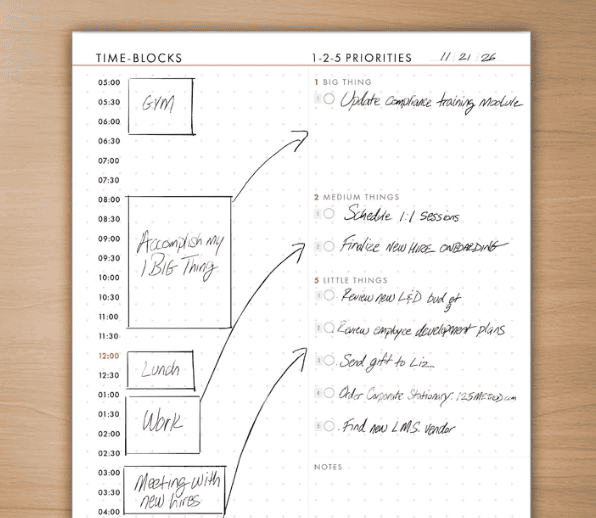 TIME-BLOCKS
05:00
05:30
06:00
06:30
07:00
07:30
08:00
08:30
09:00
09:30
10:00
10:30
11:00
11:30
12:00
12:30
01:00
01:30
02:00
02:30
03:00
03:30
04:00
GYM
Accomplish my
1 BIG Thing
Lunch
Work
Meeting with
new hires
1-2-5 PRIORITIES 11 21 26
1 BIG THING
Update compliance training module
2 MEDIUM THINGS
Schedule 1:1 sessions
Finalize NEW HIRE ONBOARDING
5 LITTLE THINGS
Review new L&D budget
Review employee development plans
Send gift to Liz
Order Corporate Stationary: 125METHOD.com
Find new L.M.S. vendor
NOTES